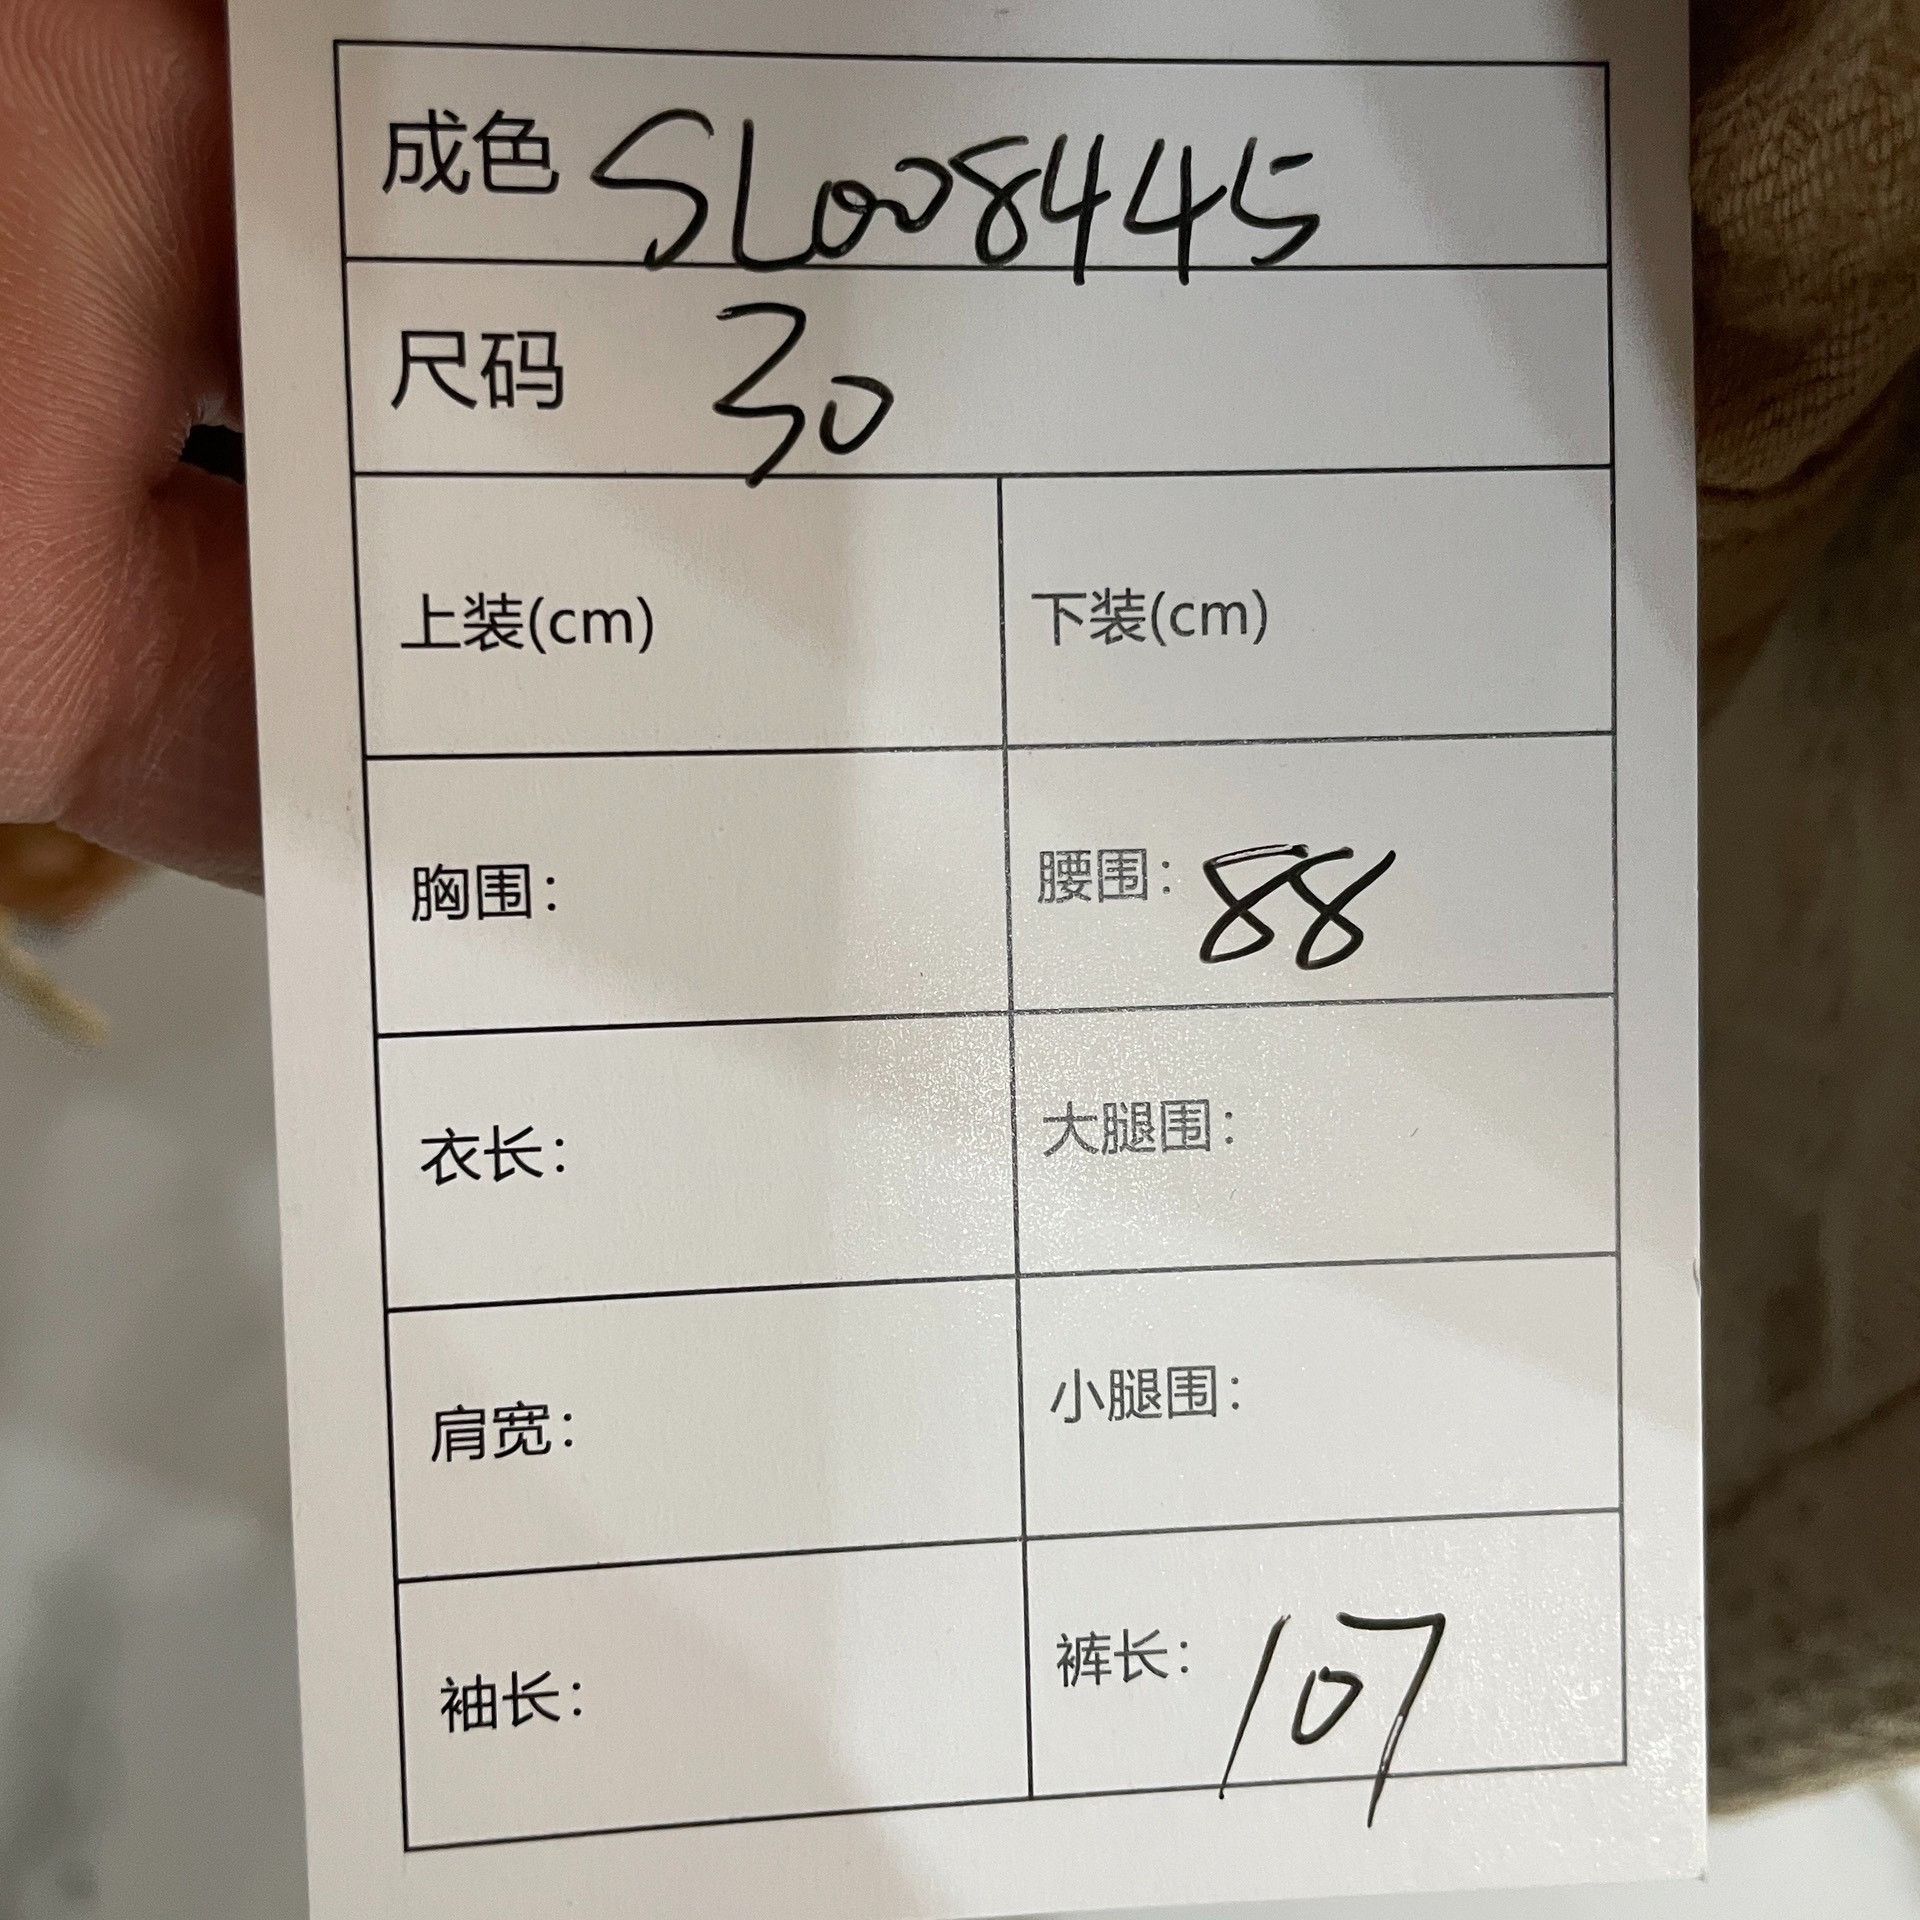 成色 SL008445
尺码 30
上装(cm) 下装(cm)
胸围: 腰围: 88
衣长: 大腿围:
肩宽: 小腿围:
袖长: 裤长: 107